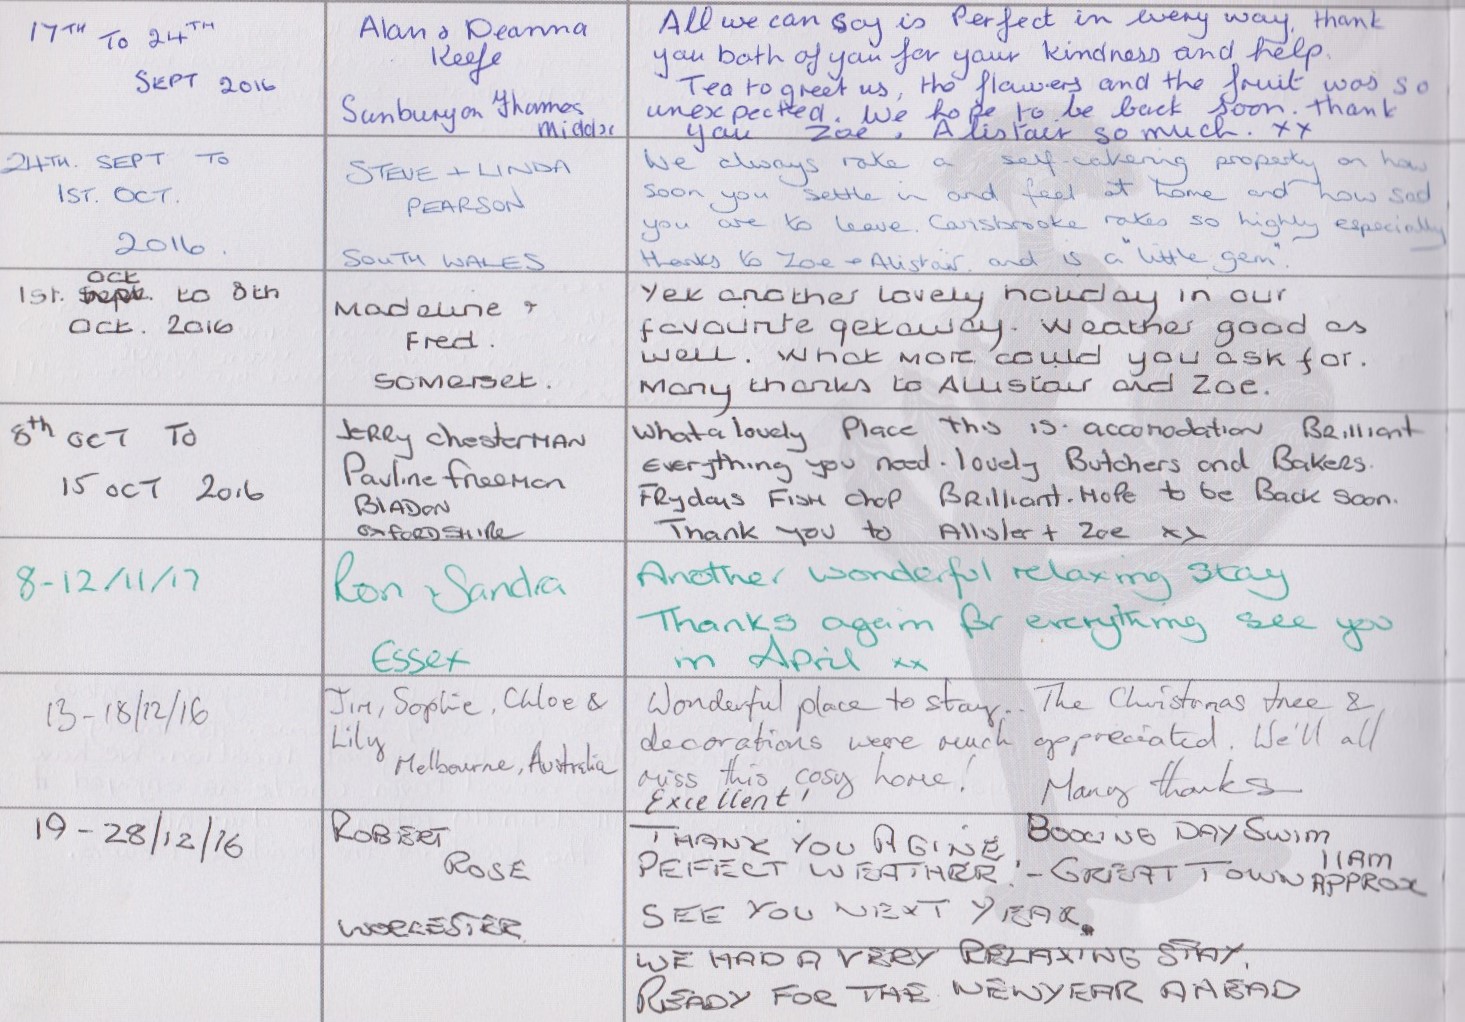 17TH TO 24TH
SEPT 2016
Alan & Deanna
Keefe
Sunbury on Thames
Middx
All we can say is Perfect in every way, thank
you both of you for your kindness and help.
Tea to greet us, the flowers and the fruit was so
unexpected. We hope to be back soon. Thank
you Zoe & Alistair so much. xx
24TH. SEPT TO
1ST. OCT.
2016.
STEVE + LINDA
PEARSON
SOUTH WALES
We always rate a self-catering property on how
soon you settle in and feel at home and how sad
you are to leave. Carisbrooke rates so highly especially
thanks to Zoe + Alistair. and is a "little gem".
Oct
1st. Sept. to 8th
Oct. 2016
Madeline &
Fred.
Somerset.
Yet another lovely holiday in our
favourite getaway. Weather good as
well. What more could you ask for.
Many thanks to Allistair and Zoe.
8th OCT TO
15 OCT 2016
JERRY ChesterMAN
Pauline Freeman
BlADON
OxFORDSHIRe
What a lovely Place this is. accomodation Brilliant
Everything you need. lovely Butchers and Bakers.
Frydays Fish chop Brilliant. Hope to be Back soon.
Thank you to Allister + Zoe xx
8-12/11/17
Ron & Sandra
Essex
Another wonderful relaxing stay
Thanks again for everything see you
in April xx
13-18/12/16
Jim, Sophie, Chloe &
Lily
Melbourne, Australia
Wonderful place to stay.. The Christmas tree &
decorations were much appreciated. We'll all
miss this cosy home! Many thanks
Excellent!
19-28/12/16
ROBERT
ROSE
WORCESTER
THANK YOU AGINE BOOCING DAY SWIM
PEFFECT WEATHER! - GREAT TOWN 11AM APPROX
SEE YOU NEXT YEAR.
WE HAD A VERY RELAXING STAY.
READY FOR THE NEWYEAR AHEAD